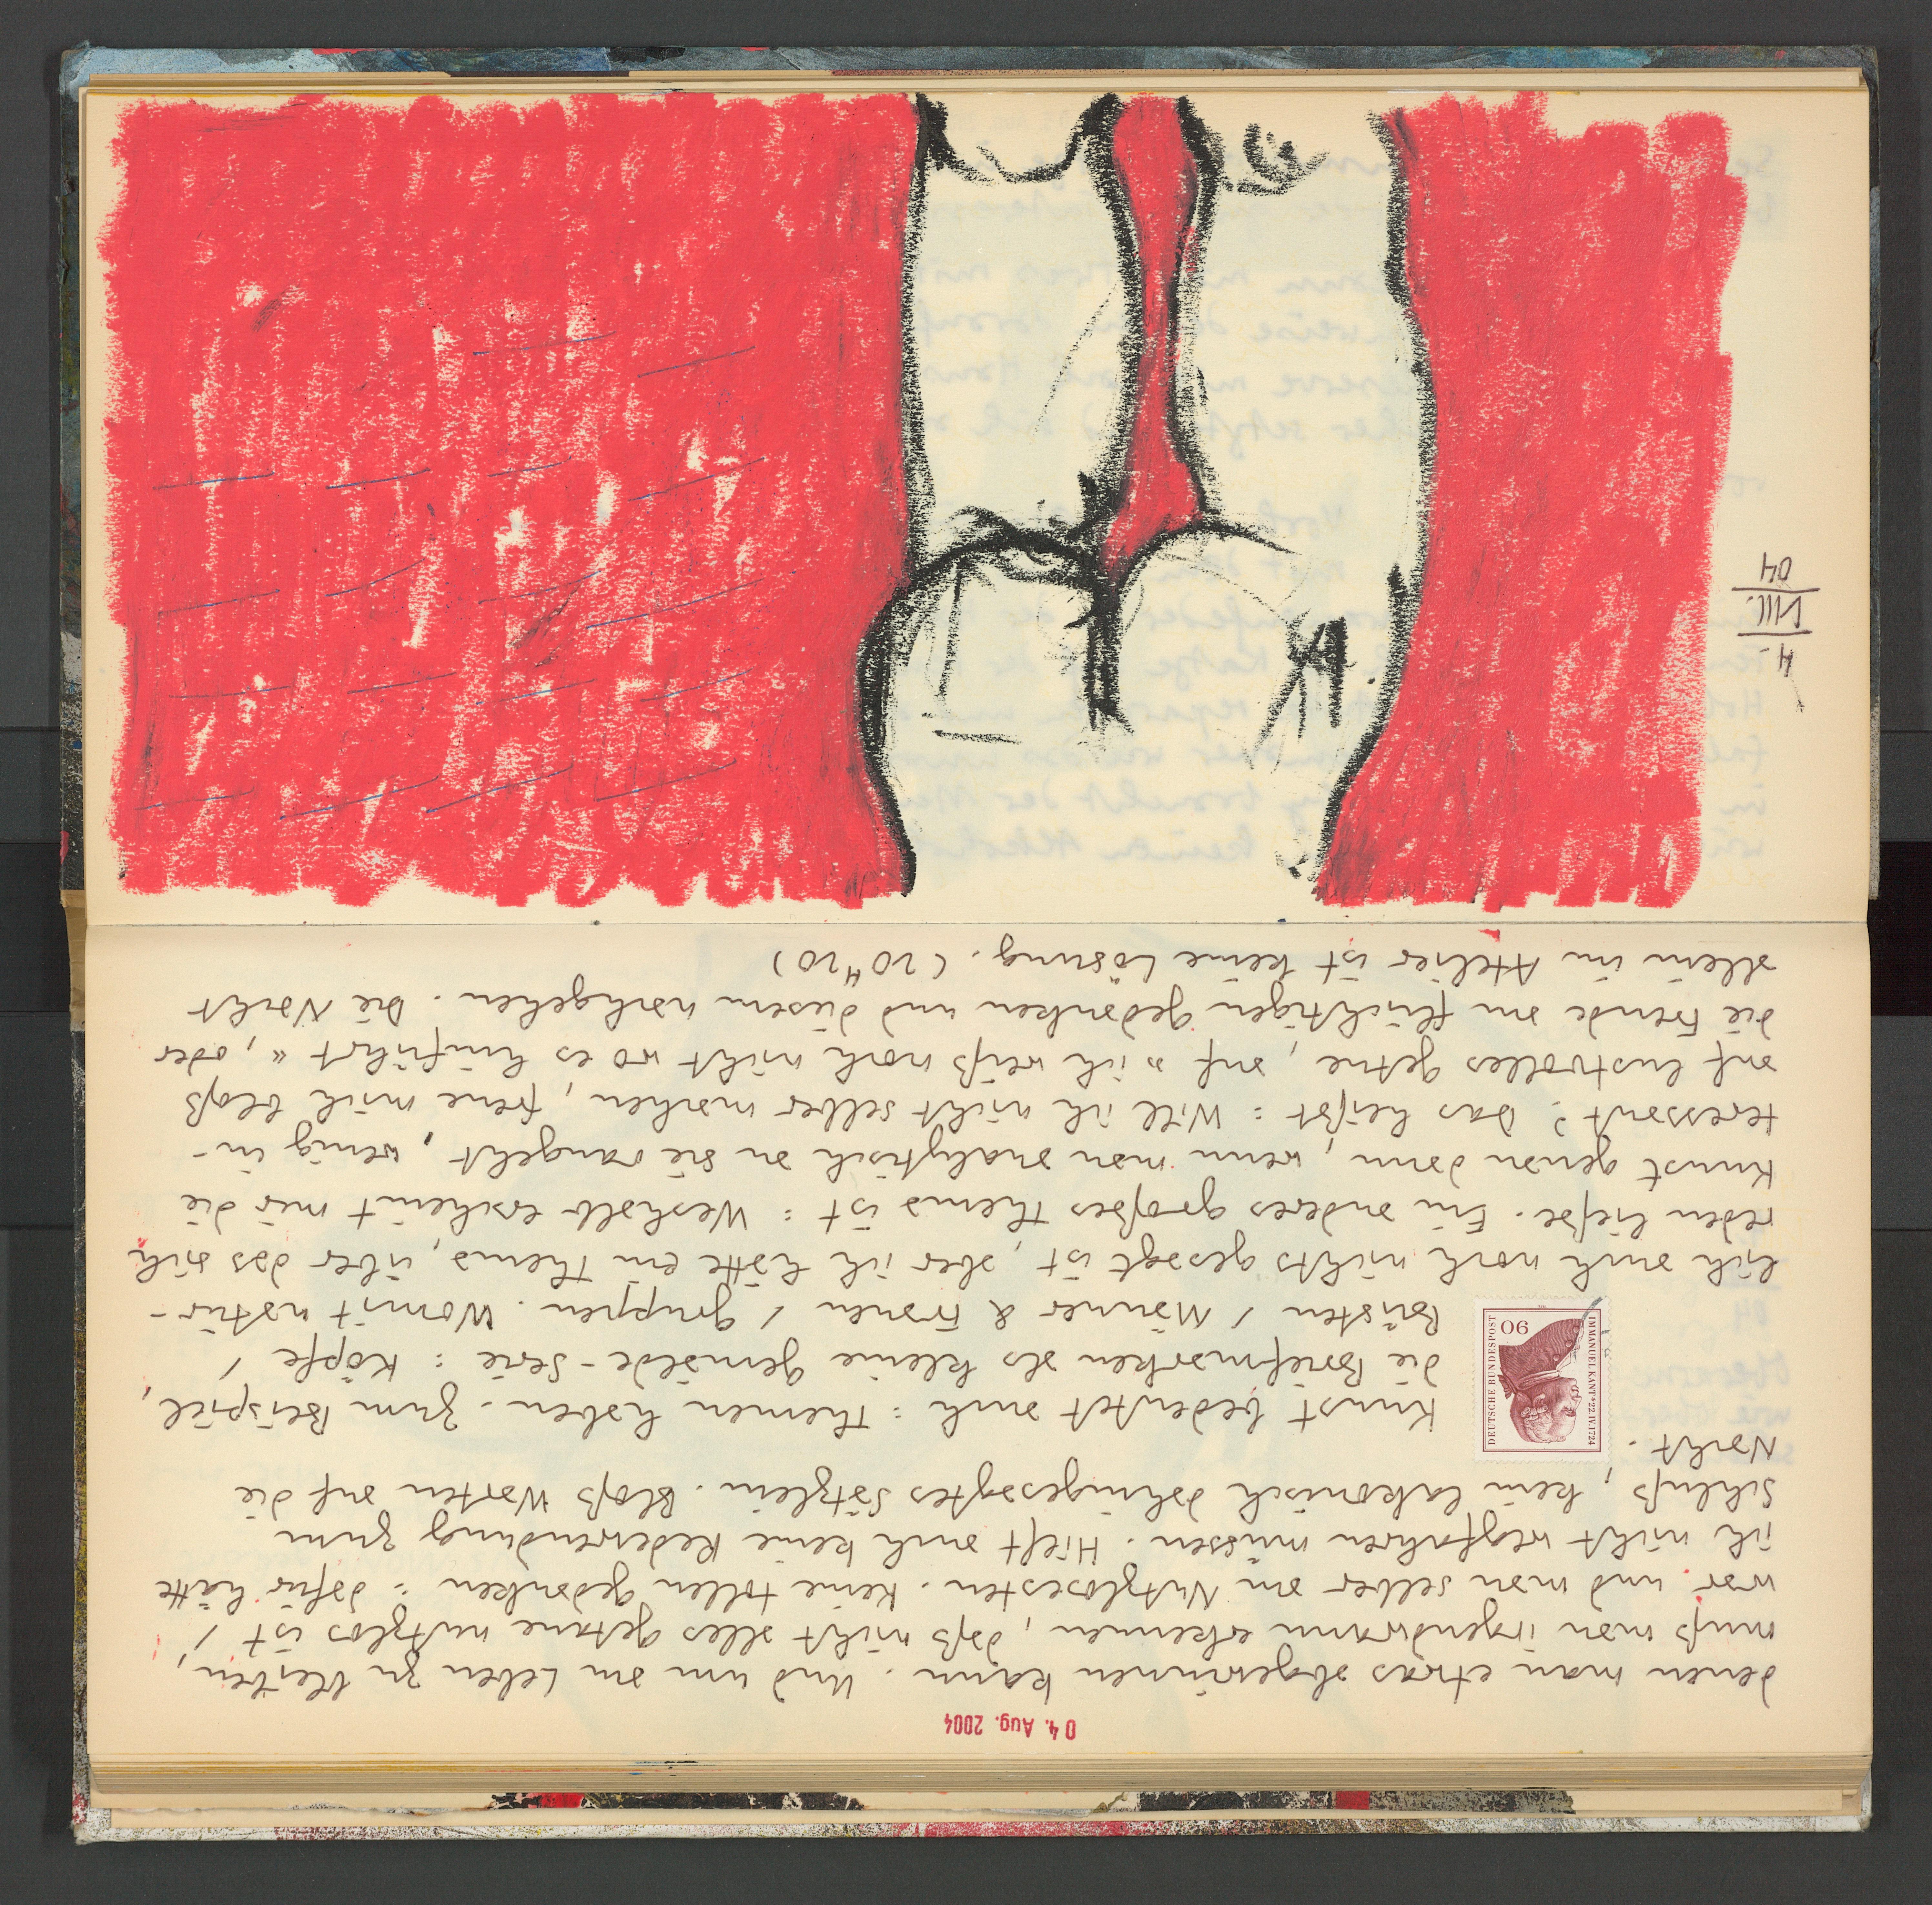 04. Aug. 2004
denen man etwas abgewinnen kann. Und um am Leben zu bleiben,
muß man irgendwann erkennen, daß nicht alles getane nutzlos ist /
war und man selber am Nutzlosesten. Keine tollen gedanken: dafür hätte
ich nicht wegfahren müssen. Hilft auch keine Redewendung zum
Schluß, kein lakonisch dahingesagtes Sätzlein. Bloß Warten auf die
Nacht.
Kunst bedeutet auch: Themen haben. Zum Beispiel,
die Briefmarken als kleine gemälde-Serie: Köpfe /
Büsten / Männer & Frauen / gruppen. Womit natür-
lich auch noch nichts gesagt ist, aber ich hätte ein Thema, über das sich
reden ließe. Ein anderes großes Thema ist: Weshalb erscheint mir die
Kunst genau dann, wenn man analytisch an sie rangeht, wenig in-
teressant? Das heißt: Will ich nicht selber machen, freue mich bloß
auf lustvolles getue, auf »ich weiß noch nicht wo es hinführt«, oder
die Freude am flüchtigen gedanken und diesem nachgehen. Die Nacht
allein im Atelier ist keine Lösung. (20"20)
DEUTSCHE BUNDESPOST
IMMANUEL KANT * 22.IV.1724
90
4.
VIII.
04